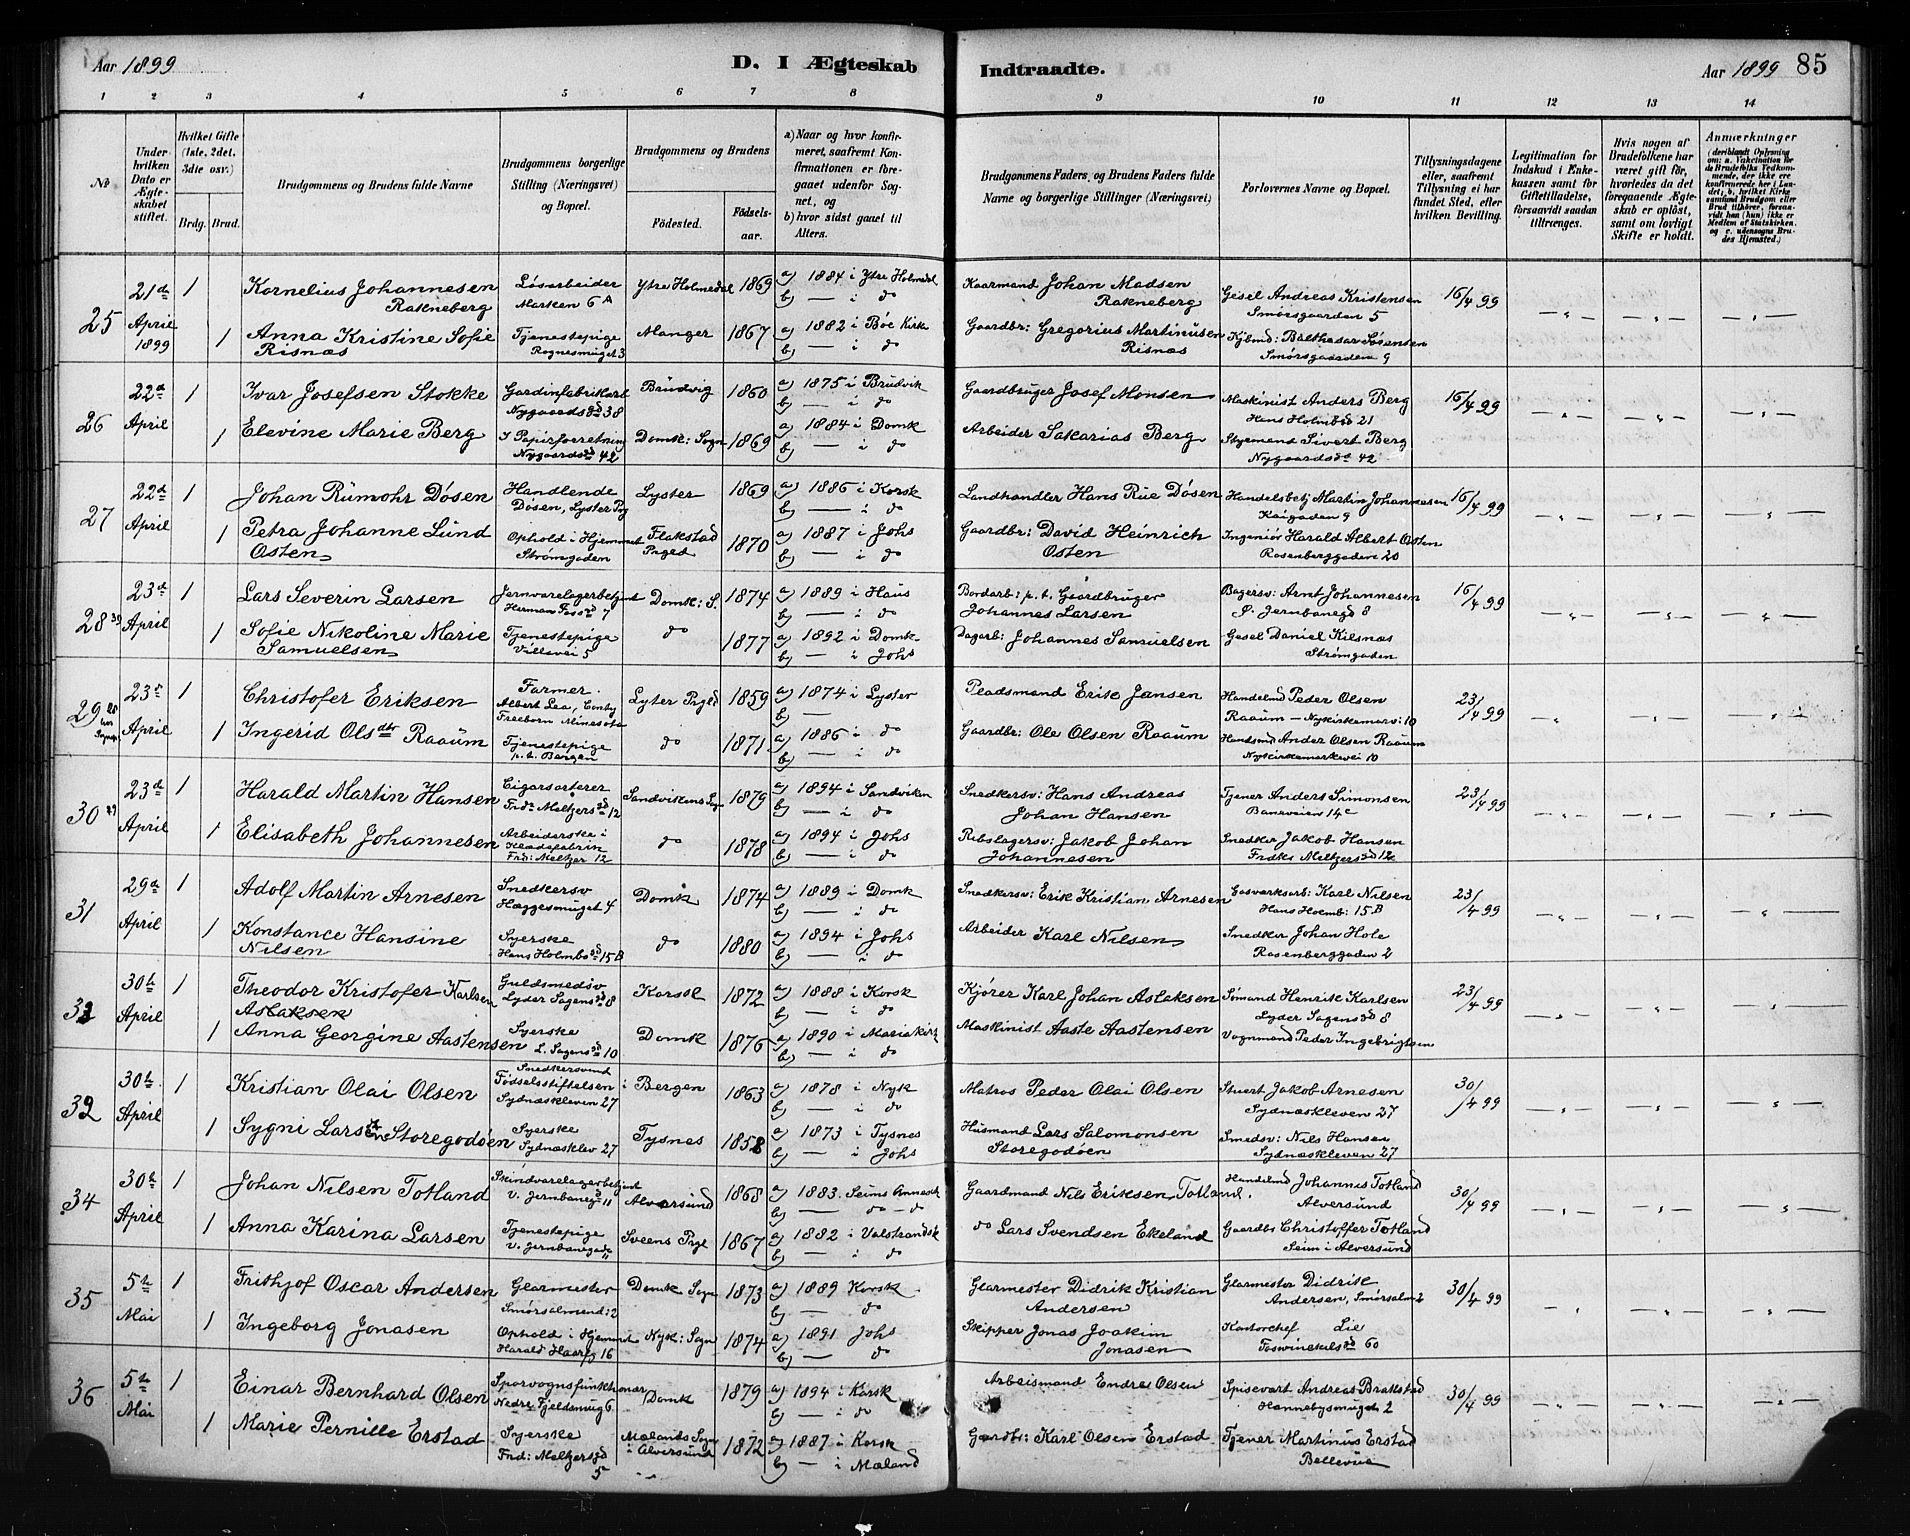 Aar 1899
D. I Ægteskab Indtraadte.
Aar 1899 85
1 2 3 4 5 6 7 8 9 10 11 12 13 14
No
Under hvilken Dato er Ægteskabet stiftet.
Hvilket Gifte (1ste, 2det, 3die osv.)
Brdg. Brud.
Brudgommens og Brudens fulde Navne
Brudgommens borgerlige Stilling (Næringsvei) og Bopæl.
Brudgommens og Brudens
Fødested. Fødselsaar.
a) Naar og hvor konfirmeret, saafremt Konfirmationen er foregaaet udenfor Sognet, og
b) hvor sidst gaaet til Alters.
Brudgommens Faders og Brudens Faders fulde Navne og borgerlige Stillinger (Næringsvei)
Forlovernes Navne og Bopæl.
Tillysningsdagene eller, saafremt Tillysning ei har fundet Sted, efter hvilken Bevilling.
Legitimation for Indskud i Enkekassen samt for Giftetilladelse, forsaavidt saadan tiltrænges.
Hvis nogen af Brudefolkene har været gift før, hvorledes da det foregaaende Ægteskab er opløst, samt om lovligt Skifte er holdt.
Anmærkninger
(deriblandt Oplysning om: a. Vakcination for de Brudefolks Vedkommende, der ikke ere konfirmerede her i Landet; b. hvilket Kirkesamfund Brudgom eller Brud tilhører, forsaavidt han (hun) ikke er Medlem af Statskirken. og c. udensogns Brudes Hjemsted.)
25 21de April 1899 1 Kornelius Johannesen Rakneberg Løsarbeider Marken 6A Ytre Holmedal 1869 a) 1884 i Ytre Holmedal b) — i do Kaarmand Johan Madsen Rakneberg Gesel Andreas Kristensen Smørsgaarden 5 16/4 99
1 Anna Kristine Sofie Risnæs Tjenestepige Rognesmuget 3 Manger 1867 a) 1882 i Bøe Kirk b) — i do Gaardbr: Gregorius Martinusen Risnæs Kjbmd: Balthasar Sørensen Smørsgaarden 9
26 22de April 1 Ivar Josefsen Stokke Gardinfabrikarb Nygaardsgd 38 Brudvig 1860 a) 1875 i Brudvik b) — i do Gaardbruger Josef Monsen Maskinist Anders Berg Hans Holmbgd 21 16/4 99
1 Elevine Marie Berg I Papirforretning Nygaardsgd 42 Domk: Sogn 1869 a) 1884 i Domk b) — i do Arbeider Sakarias Berg Styrmand Sivert Berg Nygaardsgd 42
27 22de April 1 Johan Rumohr Døsen Handlende Døsen, Lyster Pg Lyster 1869 a) 1886 i Korsk b) — i do Landhandler Hans Rue Døsen Handelsbetj Martin Johannesen Kaigaden 9 16/4 99
1 Petra Johanne Lund Osten Ophold i Hjemmet Strømgaden Flakstad Prgld 1870 a) 1887 i Johs b) — i do Gaardbr: David Heinrich Osten Ingeniør Harald Albert Osten Rosenberggaden 20
28 23de April 1 Lars Severin Larsen Jernvarelagerbetjent Herman Fossgd 7 Domk: S. 1874 a) 1889 i Haus b) — i do Bordarb: p.t. Gaardbruger Johannes Larsen Bagersv: Arnt Johannesen Ø. Jernbanegd 8 16/4 99
1 Sofie Nikoline Marie Samuelsen Tjenestepige Villavei 5 do 1877 a) 1892 i Domk b) — i Johs Dagarb: Johannes Samuelsen Gesel Daniel Kilsnæs Strømgaden
29 23de April 1 Christofer Eriksen Farmer. Albert Lea, Conty Freeborn Minesota Lyter Prgld 1859 a) 1874 i Lyster b) — Pladsmand Erik Jansen Handelmd Peder Olsen Raaum — Nykirkemarv: 10 23/4 99
1 Ingerid Olsdtr Raaum Tjenestepige p.t. Bergen do 1871 a) 1886 i do b) — i do Gaardbr: Ole Olsen Raaum Handsmd Ander Olsen Raaum Nykirkemarkevei 10
30 23de April 1 Harald Martin Hansen Cigarsorterer Frdr Meltzersgd 12 Sandvikens Sogn 1879 a) 1894 i Sandviken b) — i do Snedkersv: Hans Andreas Johan Hansen Tjener Anders Simonsen Baneveien 14c 23/4 99
1 Elisabeth Johannesen Arbeiderske i Klædefabrin Frd: Meltzer 12 do 1878 a) 1894 i Johs b) — i do Rebslagersv: Jakob Johan Johannesen Snedker Jakob Hansen Fredks Meltzersgd 12
31 29de April 1 Adolf Martin Arnesen Snedkersv Hæggesmuget 4 Domk 1874 a) 1889 i Domk b) — i do Snedkersv: Erik Kristian Arnesen Gasværksarb: Karl Nilsen Hans Holmb: 15B 23/4 99
1 Konstance Hansine Nilsen Syerske Hans Holmbgd 15B do 1880 a) 1894 i Johs b) — i do Arbeider Karl Nilsen Snedker Johan Hole Rosenberggaden 2
33 30te April 1 Theodor Kristofer Karlsen Aslaksen Guldsmedsv Lyder Sagensgd 8 Korssk 1872 a) 1888 i Korsk b) — i do Kjører Karl Johan Aslaksen Sømand Henrik Karlsen Lyder Sagensgd 8 23/4 99
1 Anna Georgine Aastensen Syerske L. Sagensgd 10 Domk 1876 a) 1890 i Mariakirk b) — i do Maskinist Aaste Aastensen Vognmand Peder Ingebrigtsen
32 30te April 1 Kristian Olai Olsen Snedkersvend Fødselsstiftelsen Sydnæskleven 27 i Bergen 1863 a) 1878 i Nyk b) — i do Matros Peder Olai Olsen Stuert Jakob Arnesen Sydnæskleven 27 30/4 99
1 Sygni Larsdtr Storegodøen Syerske Sydnæsklev 27 Tysnes 1858 a) 1873 i Tysnes b) — i Johs Husmand Lars Salomonsen Storegodøen Smedsv: Nils Hansen Sydnæskleven 27
34 30te April 1 Johan Nilsen Totland Skindvarelagerbetjent V. Jernbanegd 11 Alversund 1868 a) 1883. Seims Annexk b) — do — do Gaardmand Nils Eriksen Totland. Handelmd Johannes Totland Alversund 30/4 99
1 Anna Karina Larsen Tjenestepige V. Jernbanegade 11 Sveens Pgl 1867 a) 1882 i Valstrandsk b) — i do do Lars Svendsen Ekeland Gaardbr Christoffer Totland Seim i Alversund
35 5te Mai 1 Frithjof Oscar Andersen Glarmester Smørsalmend: 2 Domk Sogn 1873 a) 1889 Korsk b) — do Glarmester Didrik Kristian Andersen Glarmester Didrik Andersen, Smørsalm 2 30/4 99
1 Ingeborg Jonasen Ophold i Hjemmet Harald Haarfg 16 Nyk: Sogn 1874 a) 1891 Johs b) — do Skipper Jonas Joakim Jonasen Kontorchef Lie Foswinckelsgd 60
36 5te Mai 1 Einar Bernhard Olsen Sporvognsfunktionær Nedre Fjeldsmug 6 Domk 1879 a) 1894 i Korsk b) — i do Arbeismand Endre Olsen Spisevært Andreas Brakstad Hannebysmuget 2 30/4 99
1 Marie Pernille Erstad Syerske Frd: Meltzersgd 5 Mælands Sogn i Alversund 1872 a) 1887 i Korsk b) — i Mæland Gaardbr: Karl Olsen Erstad Tjener Martinus Erstad Bellevue